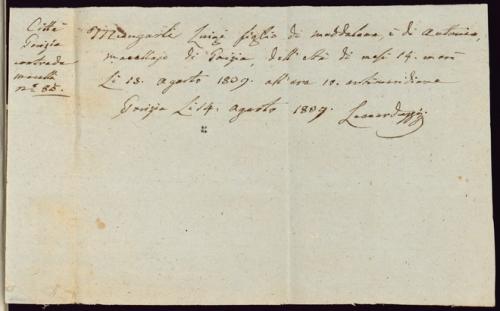 Città
Gorizia
contrada
macello
n.° 85.
Luigi figlio di maddalena, e di Antonio,
macellajo di Gorizia, dell' età di mesi 14. morì
Li 13. agosto 1809. all'ora 10. antimeridiane
Gorizia Li 14. agosto 1809.